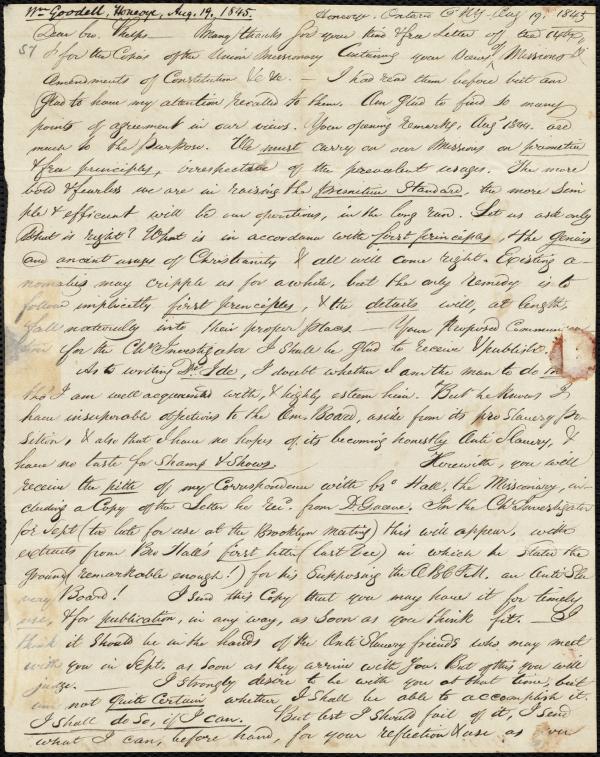 Wm Goodell, Honeoye, Aug. 19. 1845.
Honeoye, Ontario Co NY. Aug 19, 1845
57
Dear bro. Phelps — Many thanks for your kind & free Letter of the
& for the Copies of the Union Missionary Containing your Views of Missions &
Amendments of Constitution &c &c. — I had read them before but am
glad to have my attention recalled to them. Am glad to find so many
points of agreement in our views. Your opening remarks, Aug 1844. are
much to the purpose. We must carry on our Missions on primitive
& free principles, irrespective of the prevalent usages. The more
bold & fearless we are in raising the Primitive Standard, the more sim
ple & efficient will be our operations, in the long run. Let us ask only
What is right? What is in accordance with first principles, & the genius
and ancient usages of Christianity & all will come right. Existing a-
nomalies may cripple us for a while, but the only Remedy is to
follow implicitly first principles, & the details will, at length,
fall naturally into their proper places. — Your Proposed Communica
tion for the Chn Investigator I shall be glad to receive & publish.
As to writing Dr. Ide, I doubt whether I am the man to do it
tho I am well acquainted with, & highly esteem him. But he knows I
have insuperable objections to the Am. Board, aside from its pro Slavery Po-
sition, & also that I have no hopes of its becoming honestly Anti Slavery, &
have no taste for Shams & Shows. Herewith, you will
receive the pith of my Correspondence with bro Hall, the Missionary, in-
cluding a Copy of the Letter he recd. from D. Greene. In the Chn Investigator
for Sept (too late for use at the Brooklyn meeting) this will appear, with
extracts from Bro Halls first letter (last Dec) in which he stated the
ground (remarkable enough!) for his Supposing the A.B.C.F.M. an Anti Sla
very Board! I send this Copy that you may have it for timely
use, & for publication, in any way, as soon as you think fit. — I
think it should be in the hands of the Anti Slavery friends who may meet
with you in Sept. as soon as they arrive with you. But of this you will
judge. — I strongly desire to be with you at that time, but
am not Quite Certain whether I shall be able to accomplish it.
I shall do so, if I can. But lest I should fail of it, I send
what I can, before hand, for your reflection & use as